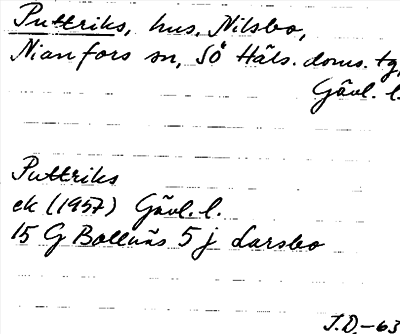 Puttriks, hus, Nilsbo,
Nianfors sn, SÖ Häls. doms. tg,
Gävl. l.
Puttriks
ek (1957) Gävl. l.
15 G Bollnäs 5 j Larsbo
J.D.-63